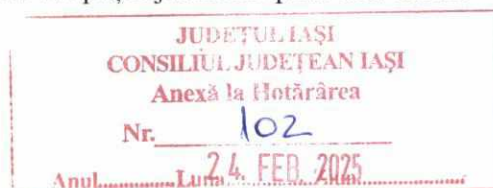 JUDEȚUL IAȘI
CONSILIUL JUDEȚEAN IAȘI
Anexă la Hotărârea
Nr. 102
Anul............Luna 24. FEB. 2025